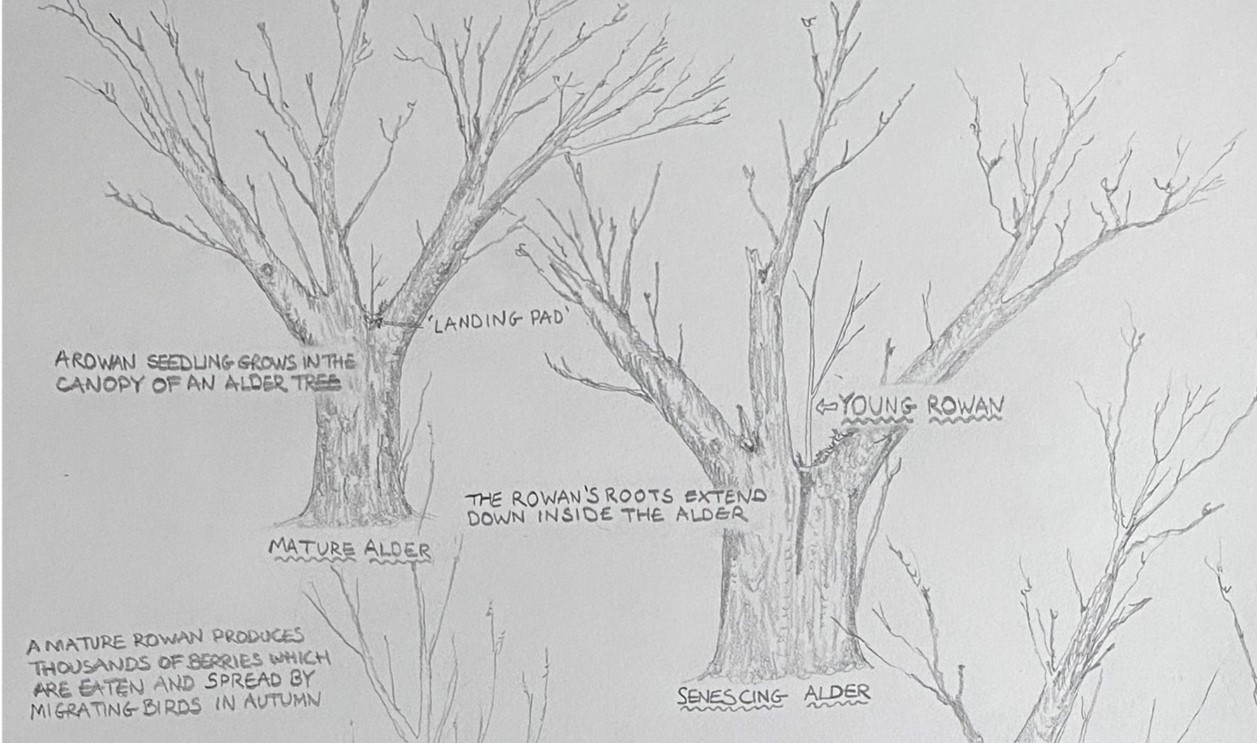 'LANDING PAD'
A ROWAN SEEDLING GROWS IN THE
CANOPY OF AN ALDER TREE
⇦YOUNG ROWAN
THE ROWAN'S ROOTS EXTEND
DOWN INSIDE THE ALDER
MATURE ALDER
A MATURE ROWAN PRODUCES
THOUSANDS OF BERRIES WHICH
ARE EATEN AND SPREAD BY
MIGRATING BIRDS IN AUTUMN
SENESCING ALDER